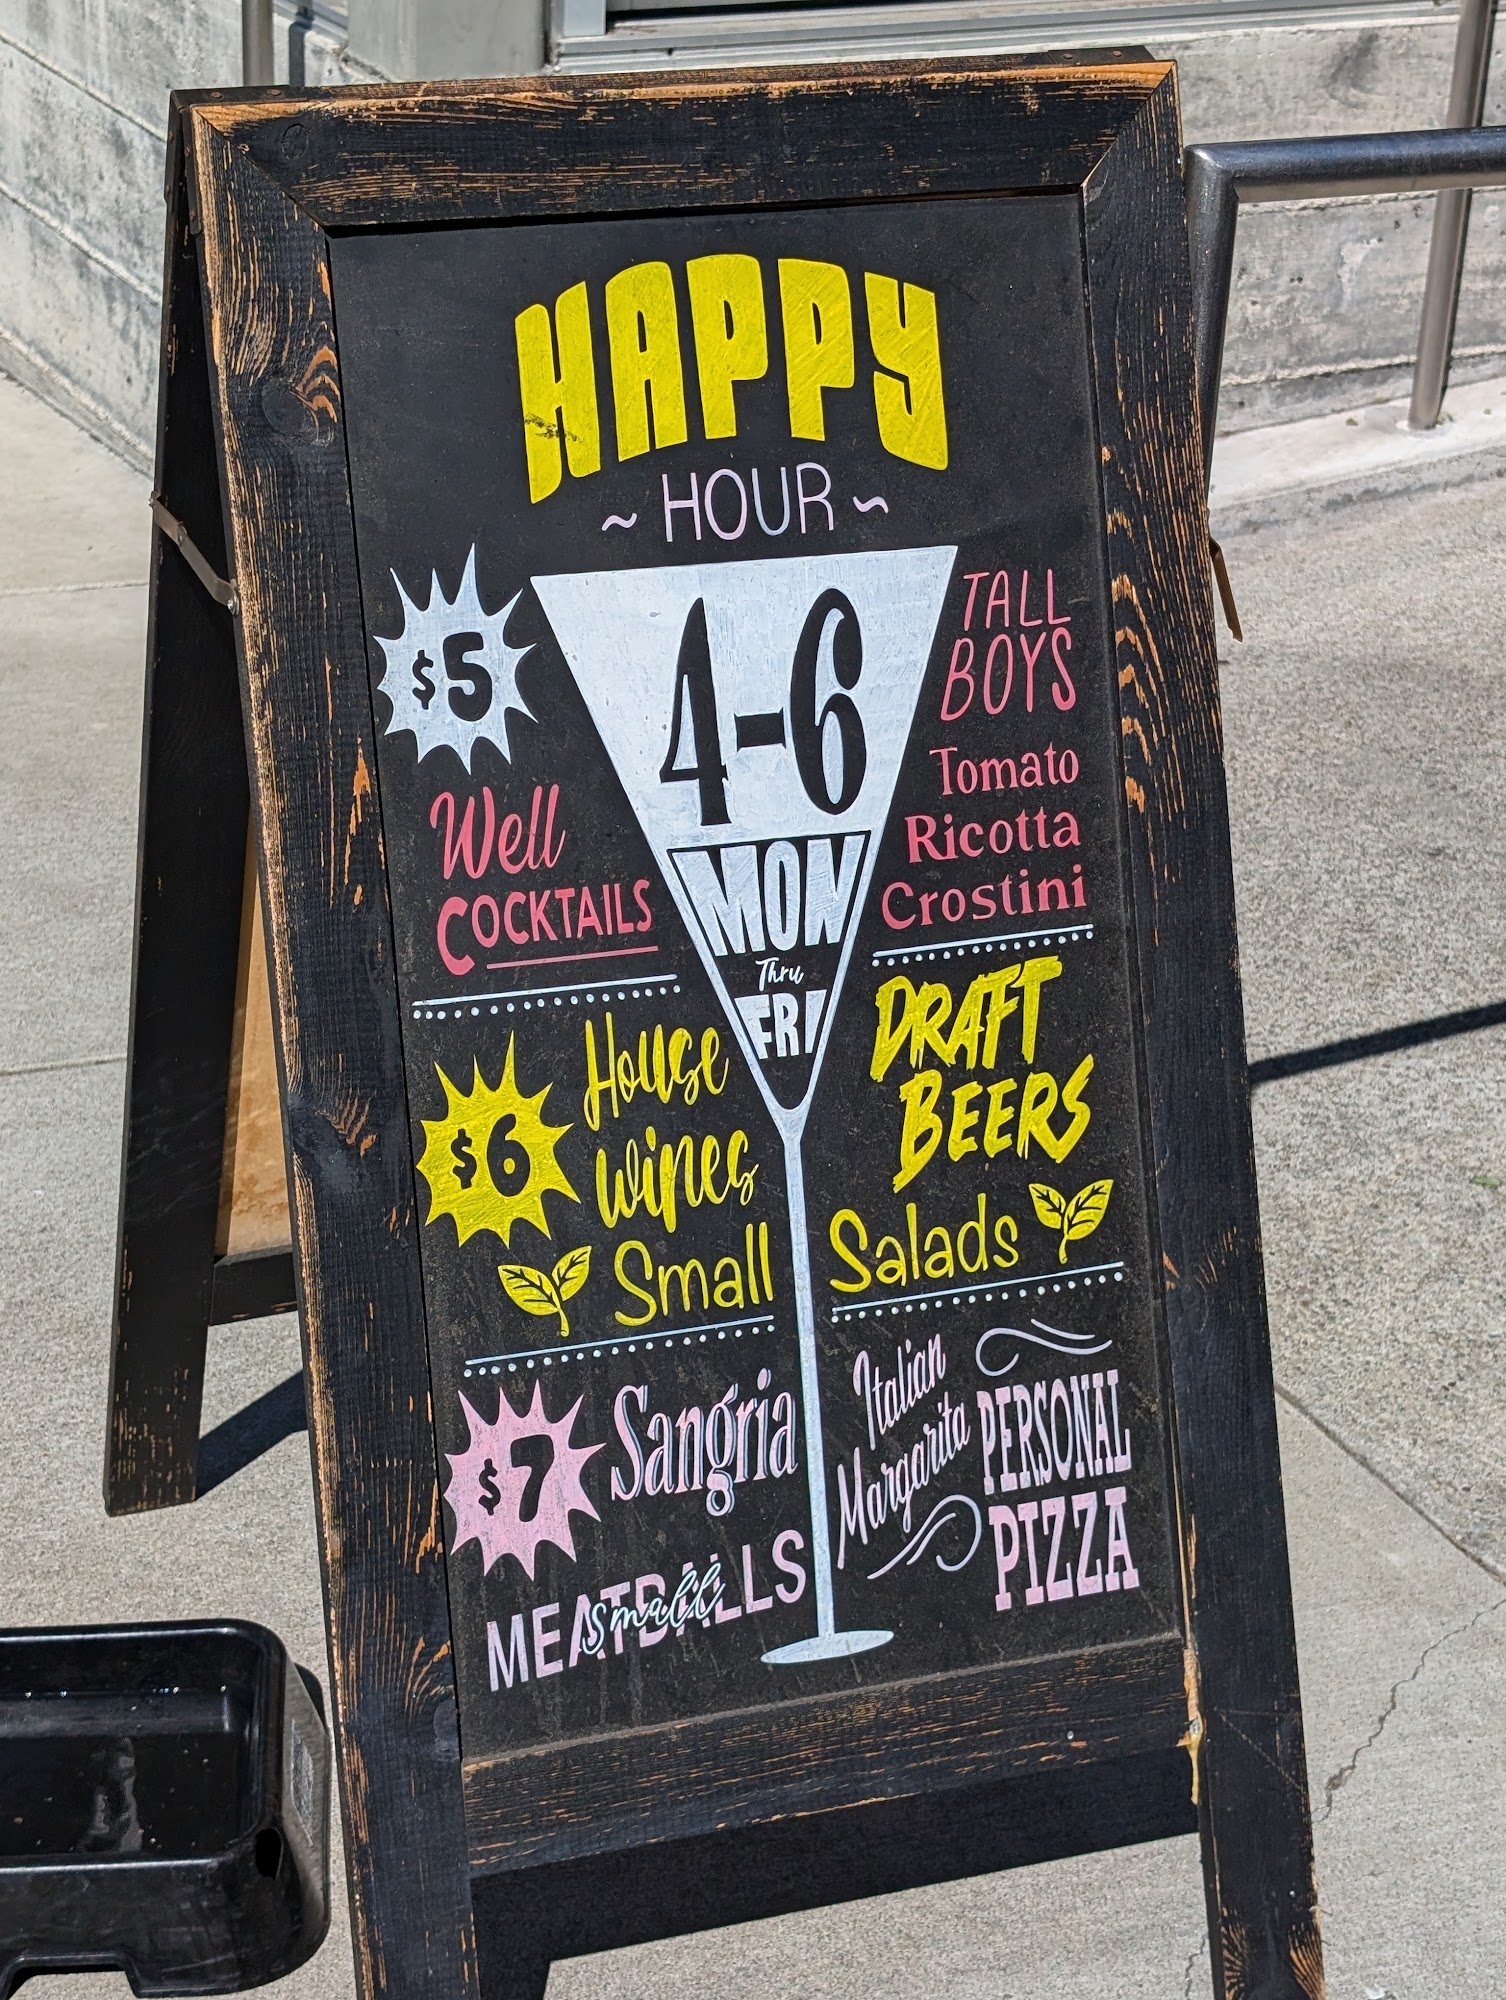 HAPPY
~ HOUR ~
4-6
MON
Thru
FRI
$5
Well
COCKTAILS
TALL
BOYS
Tomato
Ricotta
Crostini
$6
House
wines
DRAFT
BEERS
Small Salads
$7
Sangria
Italian
Margarita
small
MEATBALLS
PERSONAL
PIZZA